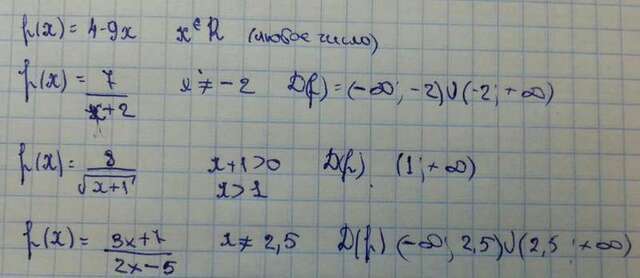 f(x) = 4-9x x ∈ R (любое число)
f(x) = 7/(x+2) x ≠ -2 D(f) = (-∞; -2)U(-2; +∞)
f(x) = 8/√(x+1) x+1>0 D(f) (1; +∞)
x>1
f(x) = (3x+7)/(2x-5) x ≠ 2,5 D(f) (-∞; 2,5)U(2,5; +∞)